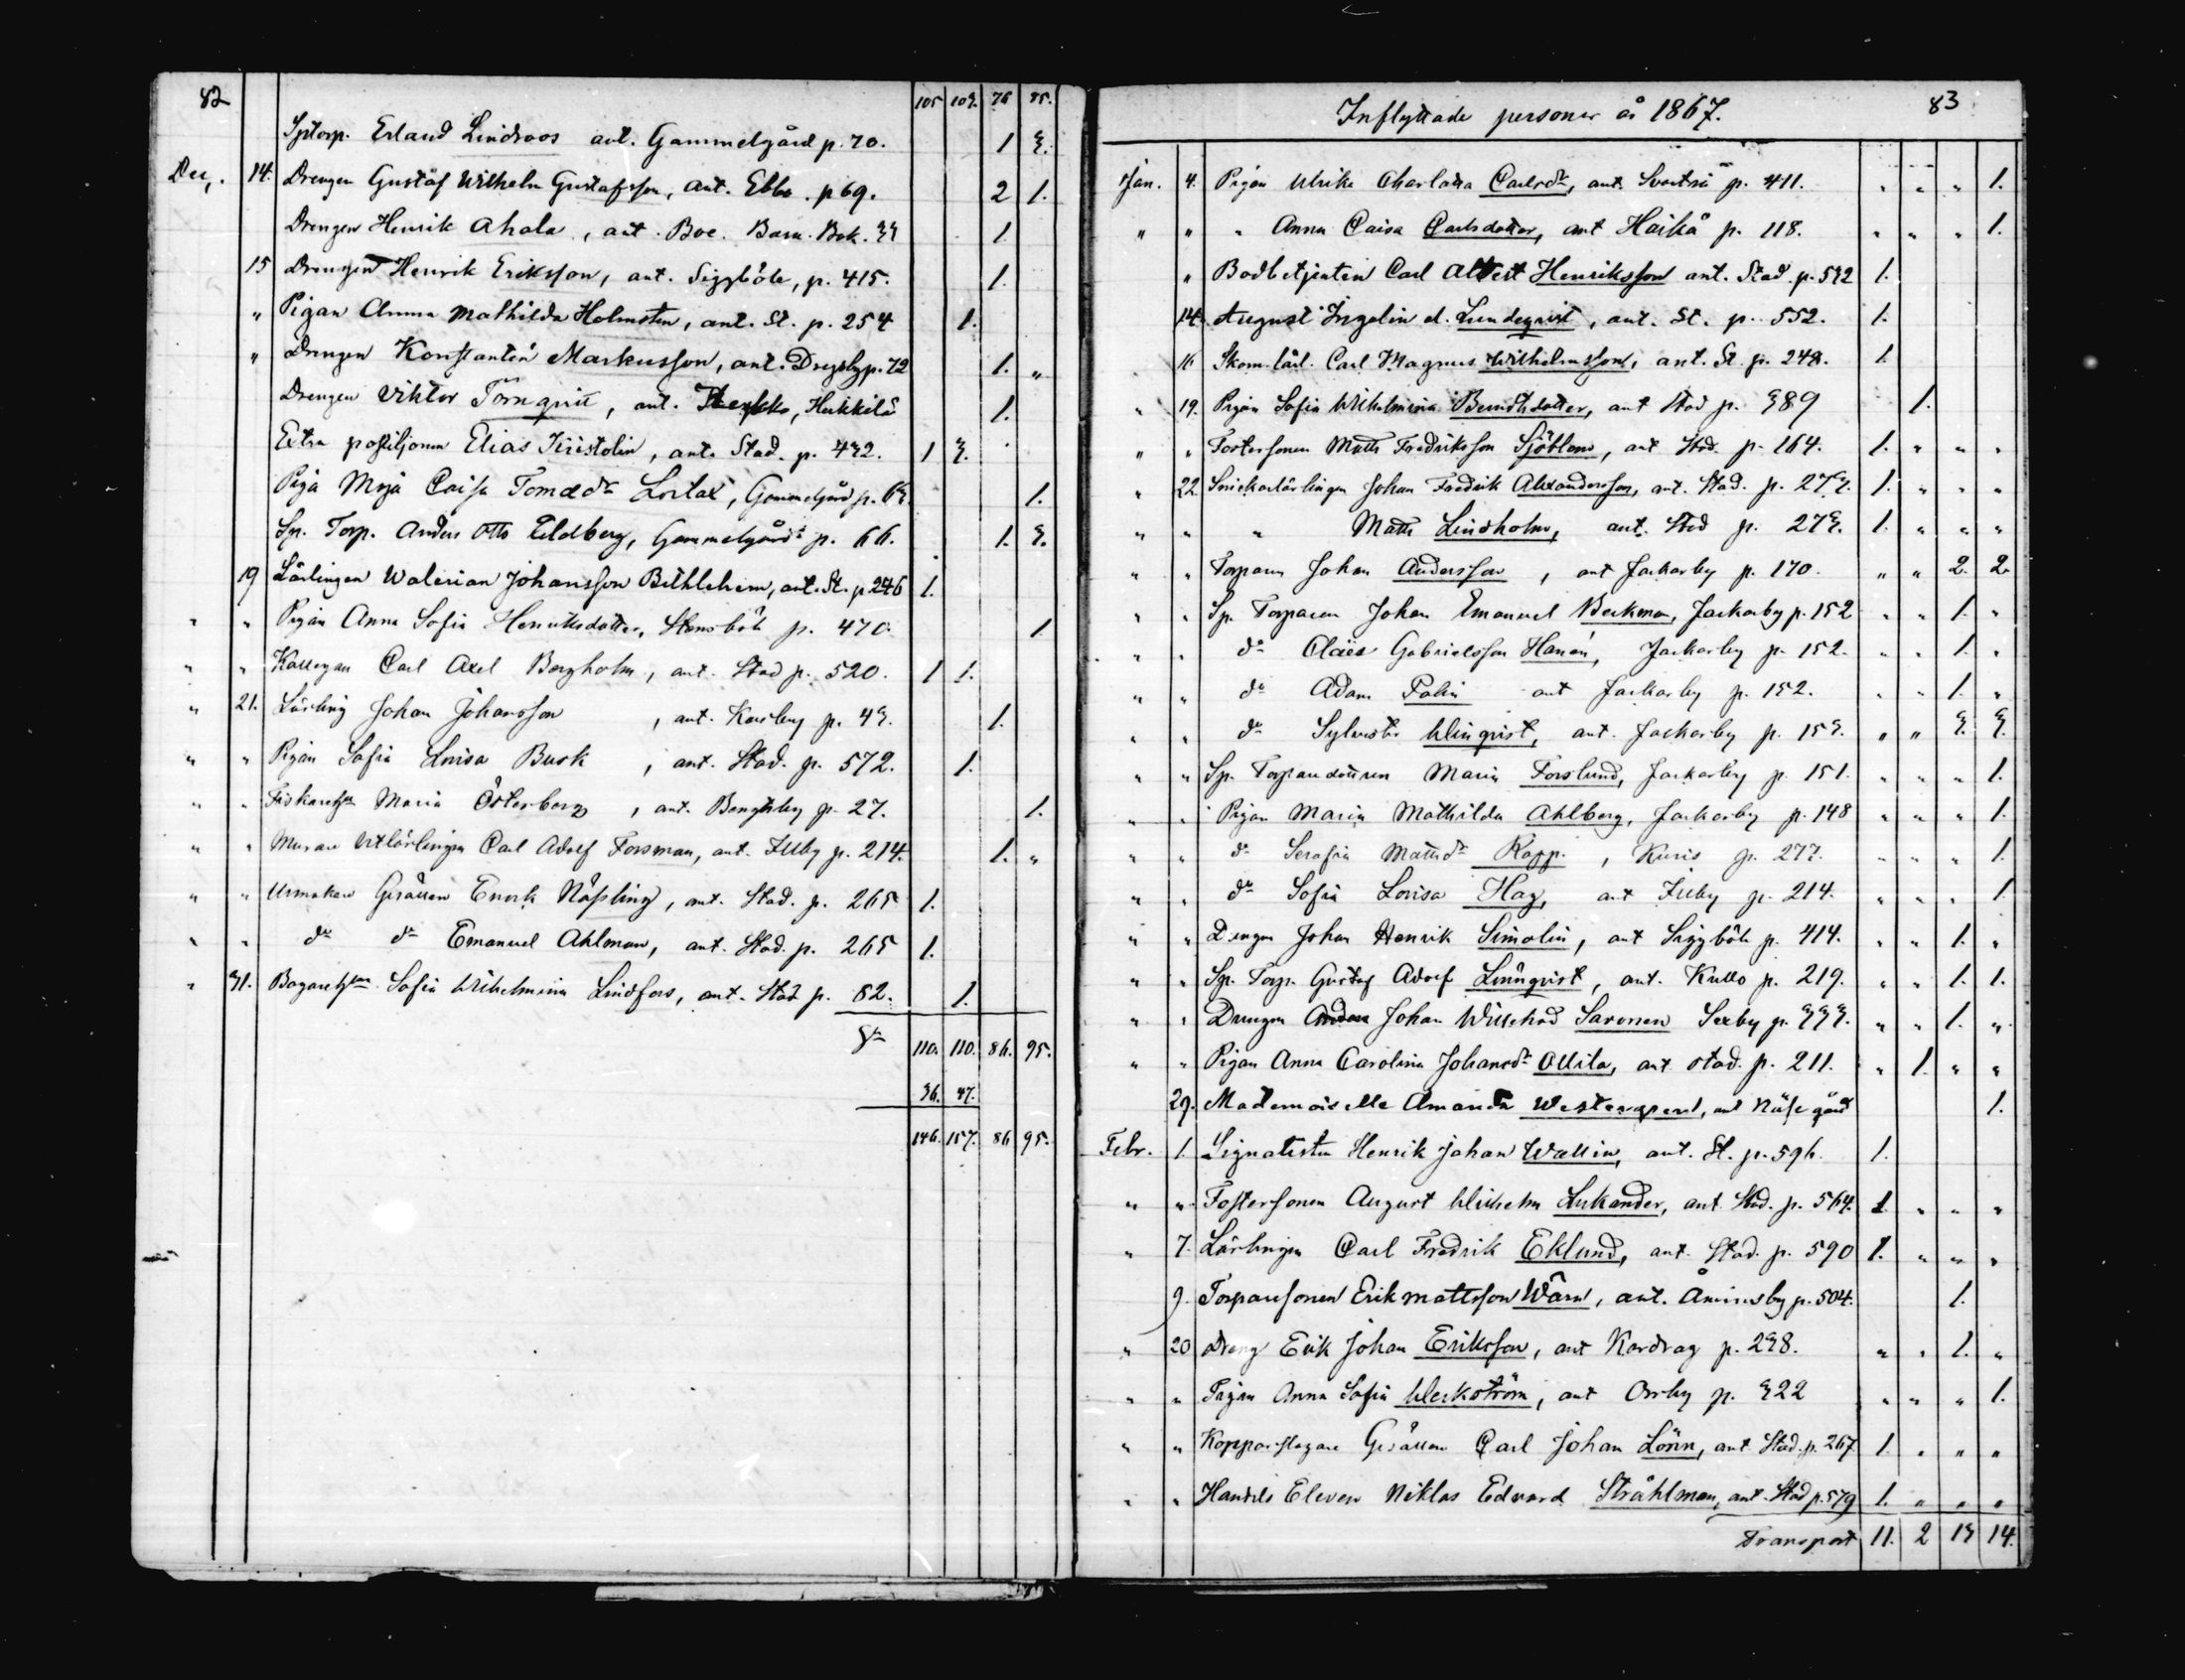 82
105 109. 76 85.
Sptorp. Erland Lindroos ant. Gammelgård p. 70. 1 3.
Dec. 14. Drengen Gustaf Wilhelm Gustafsson, ant. Ebbo. p 69. 2 1.
Drengen Henrik Ahola, ant. Boe. Barn. Bok. 33 1.
15 Drengen Henrik Eriksson, ant. Siggböle, p. 415. 1.
" Pigan Anna Mathilda Holmsten, ant. St. p. 254 1.
" Drengen Konstantin Markusson, ant. Dregsby p. 72 1. "
Drengen Viktor Törnqvist, ant. Hukkila 1.
Extra postiljonen Elias Kristolin, ant. Stad. p. 432. 1 3.
Piga Maja Caisa Tomasdr Lostax, Gammelgård p. 63. 1.
Sp. Torp. Anders Otto Eldberg, Gammelgård p. 66. 1. 3.
19 Lärlingen Walerian Johansson Bethlehem, ant. St. p. 246 1.
" " Pigan Anna Sofia Henriksdotter, Stensböle p. 470. 1
" " Karlegan Carl Axel Bergholm, ant. Stad p. 520. 1 1.
" 21. Lärling Johan Johansson, ant. Karsby p. 43. 1.
" " Pigan Sofia Lovisa Busk, ant. Stad. p. 572. 1.
" " Fiskare Maria Österberg, ant. Bengtsby p. 27. 1.
" " Murare Utlärlingen Carl Adolf Forsman, ant. Illby p. 214. 1. "
" " Urmakare Gesällen Enock Näsling, ant. Stad. p. 265 1.
" " do do Emanuel Ahlman, ant. Stad. p. 265 1.
" 31. Bagare Sofia Wilhelmina Lindfors, ant. Stad p. 82. 1.
Sa 110. 110. 86. 95.
36. 47.
146. 157. 86 95.
Inflyttade personer år 1867. 83
Jan. 4. Pigan Ulrika Charlotta Carlsdr, ant. Svartså p. 411. " " " 1.
" " " Anna Caisa Carlsdotter, ant Haikå p. 118. " " " 1.
" Bodbetjenten Carl Albert Henriksson ant. Stad. p. 532 1.
14. August Ingelin el. Lundeqvist, ant. St. p. 552. 1.
16 Skom. lärl. Carl Magnus Wilhelmsson, ant. St. p. 248. 1.
" 19. Pigan Sofia Wilhelmina Berndtsdotter, ant Stad p. 389 1.
" " Fostersonen Matts Fredriksson Sjöblom, ant Stad. p. 164. 1. " " "
" 22. Snickarlärlingen Johan Fredrik Alexandersson, ant. Stad. p. 273. 1. " " "
" " " Matts Lindholm, ant. Stad p. 273. 1. " " "
" " Torparen Johan Andersson, ant Jackarby p. 170. " " 2. 2.
" " Sp. Torparen Johan Emanuel Beckman, Jackarby p. 152 " " 1. "
" " do Claës Gabrielsson Hanén, Jackarby p. 152. " " 1. "
" " do Adam Palin ant Jackarby p. 152. " " 1. "
" " do Sylvester Winqvist, ant. Jackarby p. 153. " " 3. 3.
" " Sp. Torparedottren Maria Forslund, Jackarby p. 151. " " " 1.
" " Pigan Maria Mathilda Ahlberg, Jackarby p. 148 " " " 1.
" " do Serafia Mattsdr Rapp., Kuris p. 277. " " " 1.
" " do Sofia Lovisa Hag, ant Illby p. 214. " " " 1.
" " Drengen Johan Henrik Simolin, ant Siggböle p. 414. " " 1. "
" " Sp. Torp. Gustaf Adolf Linnqvist, ant. Kullo p. 219. " " 1. 1.
" " Drengen Johan Willehad Saronen Sexby p. 333. " " 1. "
" " Pigan Anna Carolina Johansdr Ollila, ant stad. p. 211. " 1. " "
29. Mademoiselle Amanda Westergren, ant Näse gård 1.
Febr. 1. Signalisten Henrik Johan Wallin, ant. St. p. 596. 1.
" " Fostersonen August Wilhelm Lukander, ant Stad. p. 564. 1. " " "
" 7. Lärlingen Carl Fredrik Eklund, ant. Stad. p. 590 1. " " "
9. Torparesonen Erik Mattsson Wärn, ant. Åminsby p. 504. 1.
" 20 Dreng Erik Johan Eriksson, ant Kardrag p. 238. " " 1. "
" " Pigan Anna Sofia Weckström, ant Orrby p. 322 " " " 1.
" " Kopparslagare Gesällen Carl Johan Lönn, ant Stad. p. 267 1. " " "
" " Handels Eleven Niklas Edvard Stråhlman, ant. Stad p. 579 1. " " "
Transport 11. 2 13 14.